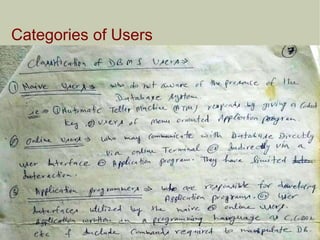 Categories of Users
7
Classification of DBMS Users⇒
① Naive Users⇒ who do not aware of the presence of the
Database System.
① Automatic Teller Machine (ATM) responds by giving a Coded
key. ② Users of menu oriented Application program.
② Online Users⇒ who may communicate with Database Directly
via online Terminal Indirectly via a
user Interface Application program. They have limited
Interaction.
③ Application programmers⇒ who are responsible for developing
Application programs user
Interfaces utilized by the naive online users.
Application written in a programming language C, COBOL
etc & Include Commands required to manipulate DB.